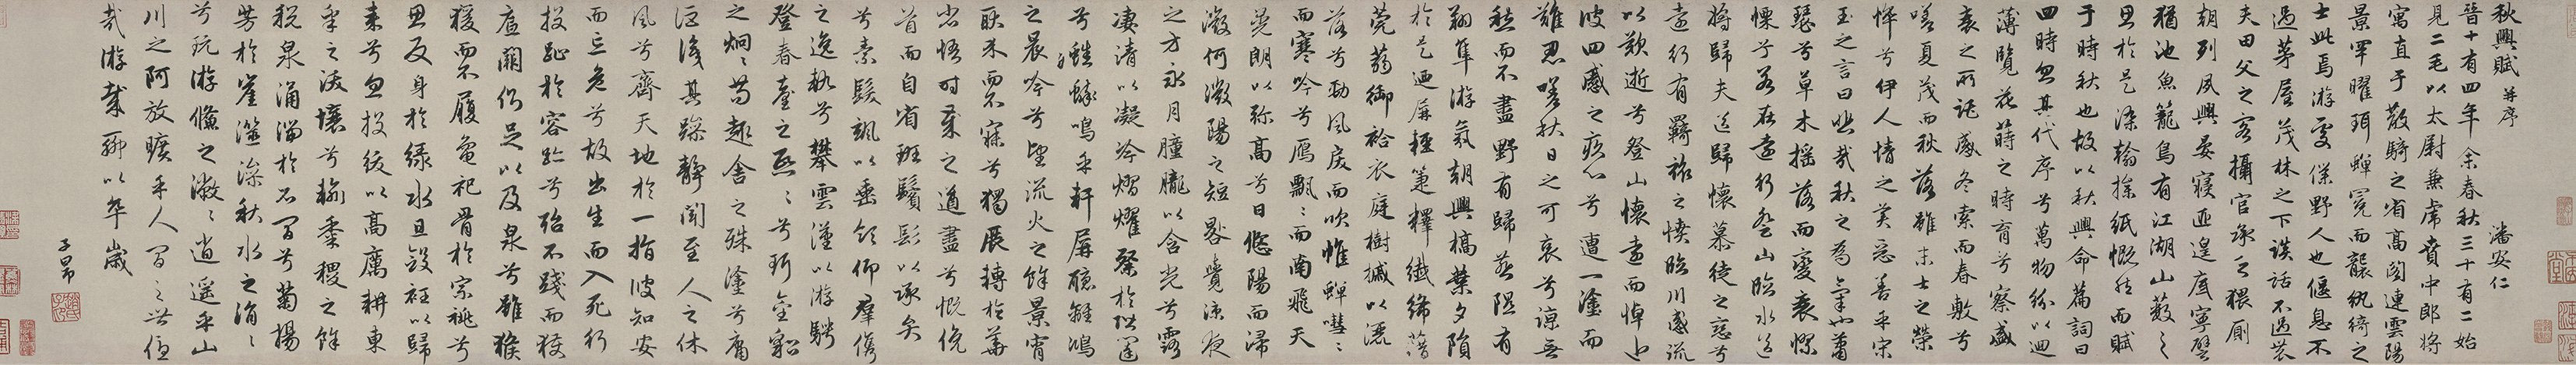 秋興賦并序 潘安仁
晉十有四年余春秋三十有二始
見二毛以太尉兼虎賁中郎將
寓直于散騎之省高閣連雲陽
景罕曜珥蟬冕而襲紈綺之
士此焉游處僕野人也偃息不
過茅屋茂林之下談話不過農
夫田父之客攝官承乏猥廁
朝列夙興晏寢匪遑底寧譬
猶池魚籠鳥有江湖山藪之
思於是染翰操紙慨然而賦
于時秋也故以秋興命篇詞曰
四時忽其代序兮萬物紛以迴
薄覽花蒔之時育兮察盛
衰之所託感冬索而春敷兮
嗟夏茂而秋落雖末士之榮
悴兮伊人情之美惡善乎宋
玉之言曰悲哉秋之為氣也蕭
瑟兮草木搖落而變衰憀
慄兮若在遠行登山臨水送
將歸夫送歸懷慕徒之戀兮
遠行有羈旅之憤臨川感流
以歎逝兮登山懷遠而悼近
彼四慼之疚心兮遭一塗而
難忍嗟秋日之可哀兮諒無
愁而不盡野有歸燕隰有
翔隼游氛朝興槁葉夕隕
於是迺屏輕箑釋纖絺藉
莞蒻御袷衣庭樹摵以灑
落兮勁風戾而吹帷蟬嘒〻
而寒吟兮雁飄〻而南飛天
晃朗以弥高兮日悠陽而浸
微何微陽之短晷覺涼夜
之方永月朣朧以含光兮露
凄清以凝冷熠燿粲於階闥
兮蟋蟀鳴乎軒屏聽離鴻
之晨吟兮望流火之餘景宵
耿介而不寐兮獨展轉於華
省悟時歲之遒盡兮慨俛
首而自省斑鬢髟以承弁
兮素髮颯以垂領仰群儁
之逸軌兮攀雲漢以游騁
登春臺之熙〻兮珥金貂
之炯〻苟趣舍之殊塗兮庸
詎識其躁靜聞至人之休
風兮齊天地於一指彼知安
而忘危兮故出生而入死行
投趾於容跡兮殆不踐而獲
底闕側足以及泉兮雖猴
猨而不履龜祀骨於宗祧兮
思反身於綠水且斂衽以歸
來兮忽投紱以高厲耕東
皋之沃壤兮輸黍稷之餘
稅泉涌湍於石間兮菊揚
芳於崖澨澡秋水之涓〻
兮玩游鯈之潎〻逍遙乎山
川之阿放曠乎人間之世優
哉游哉聊以卒歲
子昂